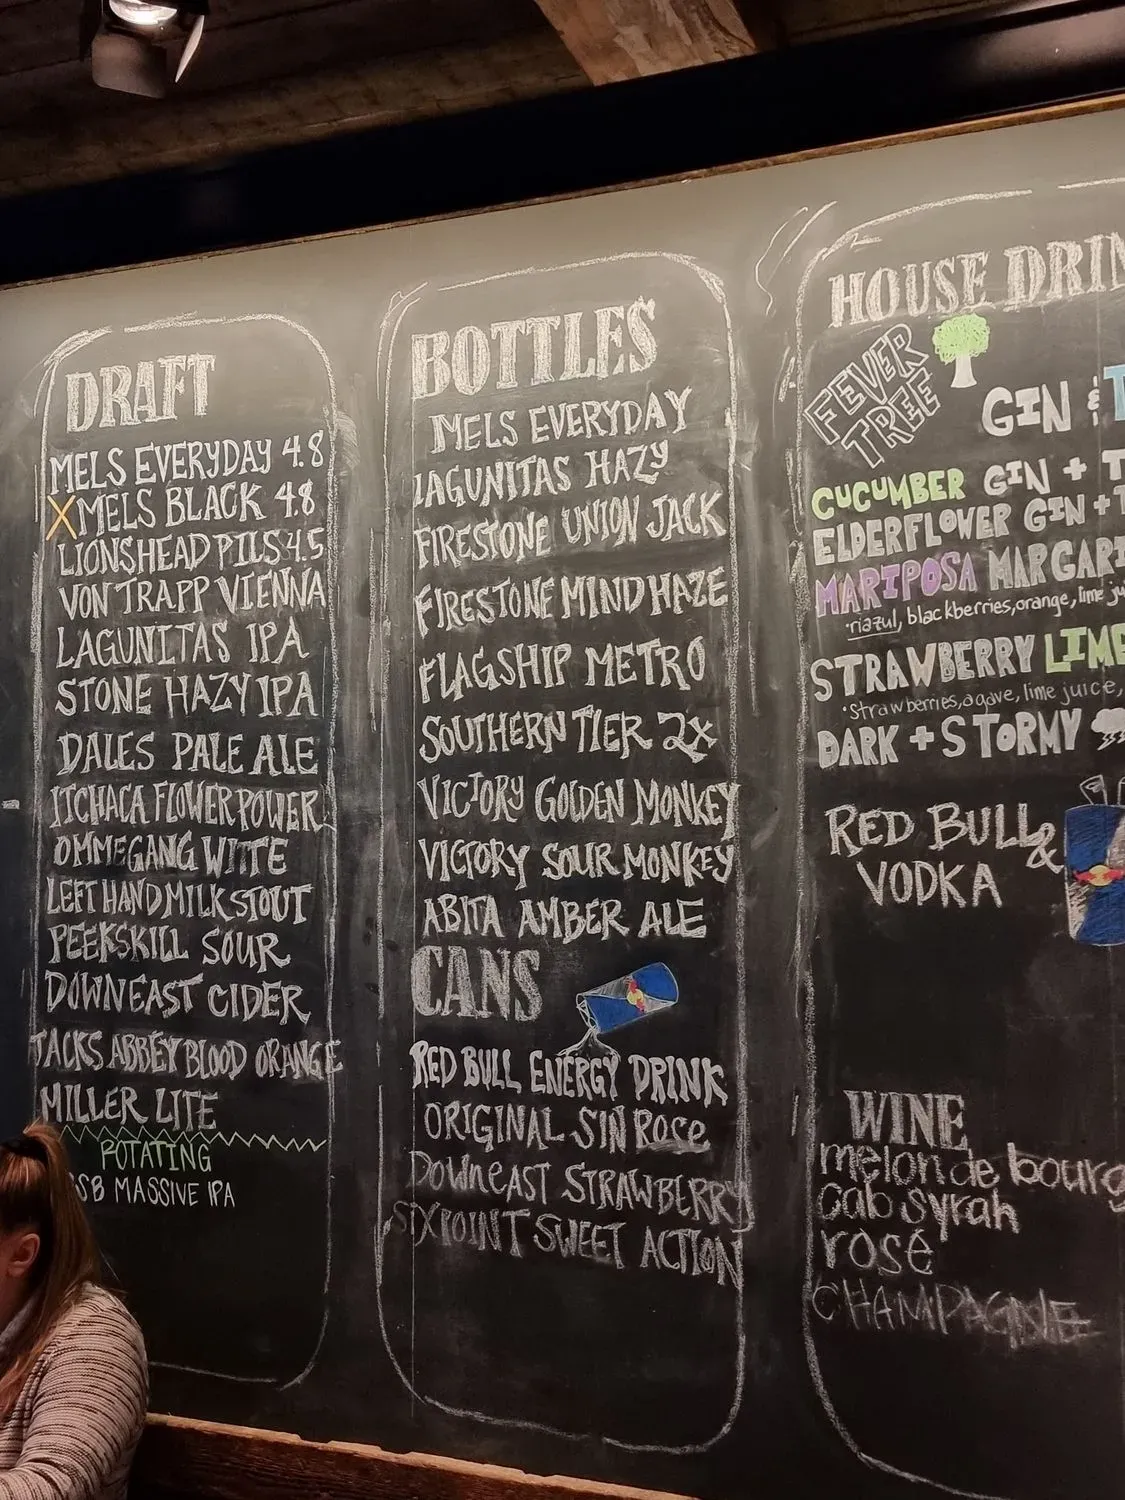 DRAFT
MELS EVERYDAY 4.8
X MELS BLACK 4.8
LIONSHEAD PILS 4.5
VON TRAPP VIENNA
LAGUNITAS IPA
STONE HAZY IPA
DALES PALE ALE
ITCHACA FLOWER POWER
OMMEGANG WITTE
LEFT HAND MILK STOUT
PEEKSKILL SOUR
DOWNEAST CIDER
TACKS ABBEY BLOOD ORANGE
MILLER LITE
ROTATING
MASSIVE IPA
BOTTLES
MELS EVERYDAY
LAGUNITAS HAZY
FIRESTONE UNION JACK
FIRESTONE MIND HAZE
FLAGSHIP METRO
SOUTHERN TIER 2X
VICTORY GOLDEN MONKEY
VICTORY SOUR MONKEY
ABITA AMBER ALE
CANS
RED BULL ENERGY DRINK
ORIGINAL SIN ROCE
DOWNEAST STRAWBERRY
SIXPOINT SWEET ACTION
HOUSE DRIN
FEVER
TREE
GIN & T
CUCUMBER GIN + T
ELDERFLOWER GIN + T
MARIPOSA MARGARI
riazul, blackberries, orange, lime ju
STRAWBERRY LIME
strawberries, agave, lime juice,
DARK + STORMY
RED BULL &
VODKA
WINE
melon de bourg
cab syrah
rosé
CHAMPAGNE